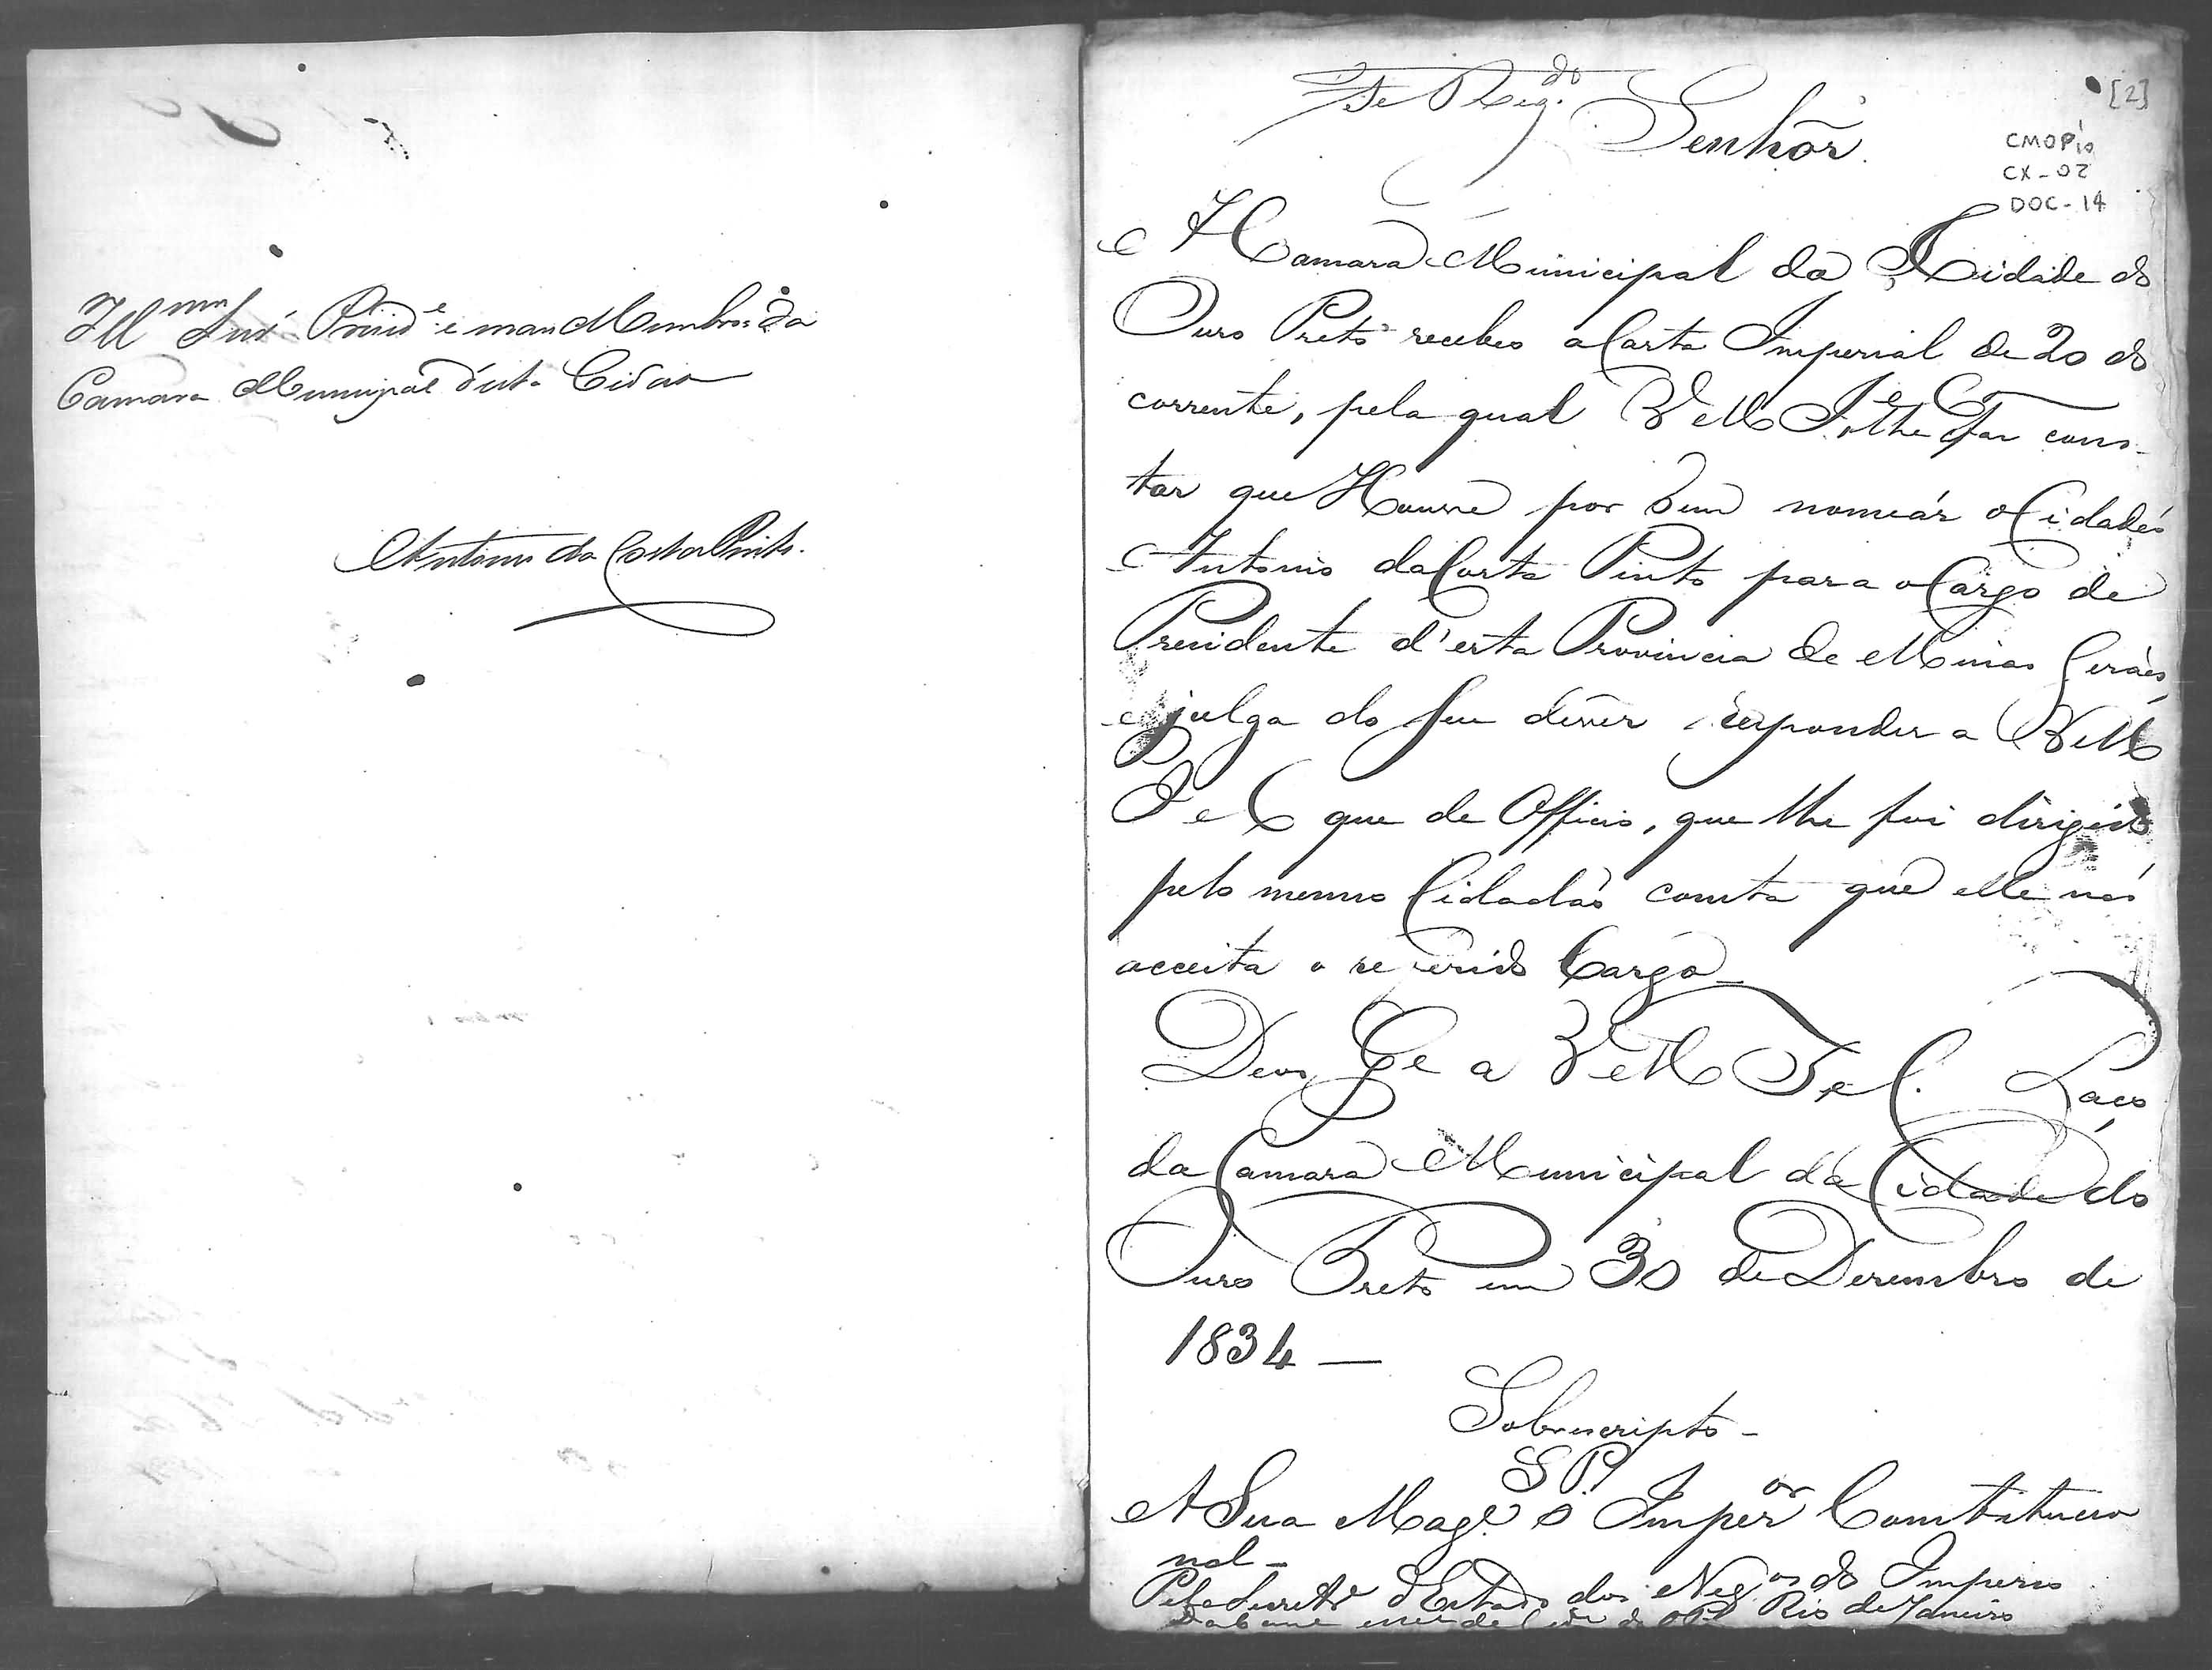 Ill.mos Snr.s Prezid.e e mais Membros da
Camara Municipal d'esta Cidade
Antonio da Costa Pinto.
[2]
Reg.do
CMOP
CX - 02
DOC - 14
Senhor
A Camara Municipal da Cidade do
Ouro Preto recebeo a Carta Imperial de 20 do
corrente, pela qual V M I e C lhe faz cons-
tar que Houve por bem nomeár o Cidadão
Antonio da Costa Pinto para o Cargo de
Presidente d'esta Provincia de Minas Geráes,
e julga do seu dever responder a V M
I e C que de Officio, que lhe foi dirigido
pelo mesmo Cidadão consta que elle não
acceita o referido Cargo_
Deos G.e a V M I e C. Paço
da Camara Municipal da Cidade do
Ouro Preto em 30 de Dezembro de
1834 —
Sobrescripto -
S P
A Sua Mag.e o Imper.or Constitucio
nal -
Pela Secret.a d'Estado dos Neg.os do Imperio
Rio de Janeiro